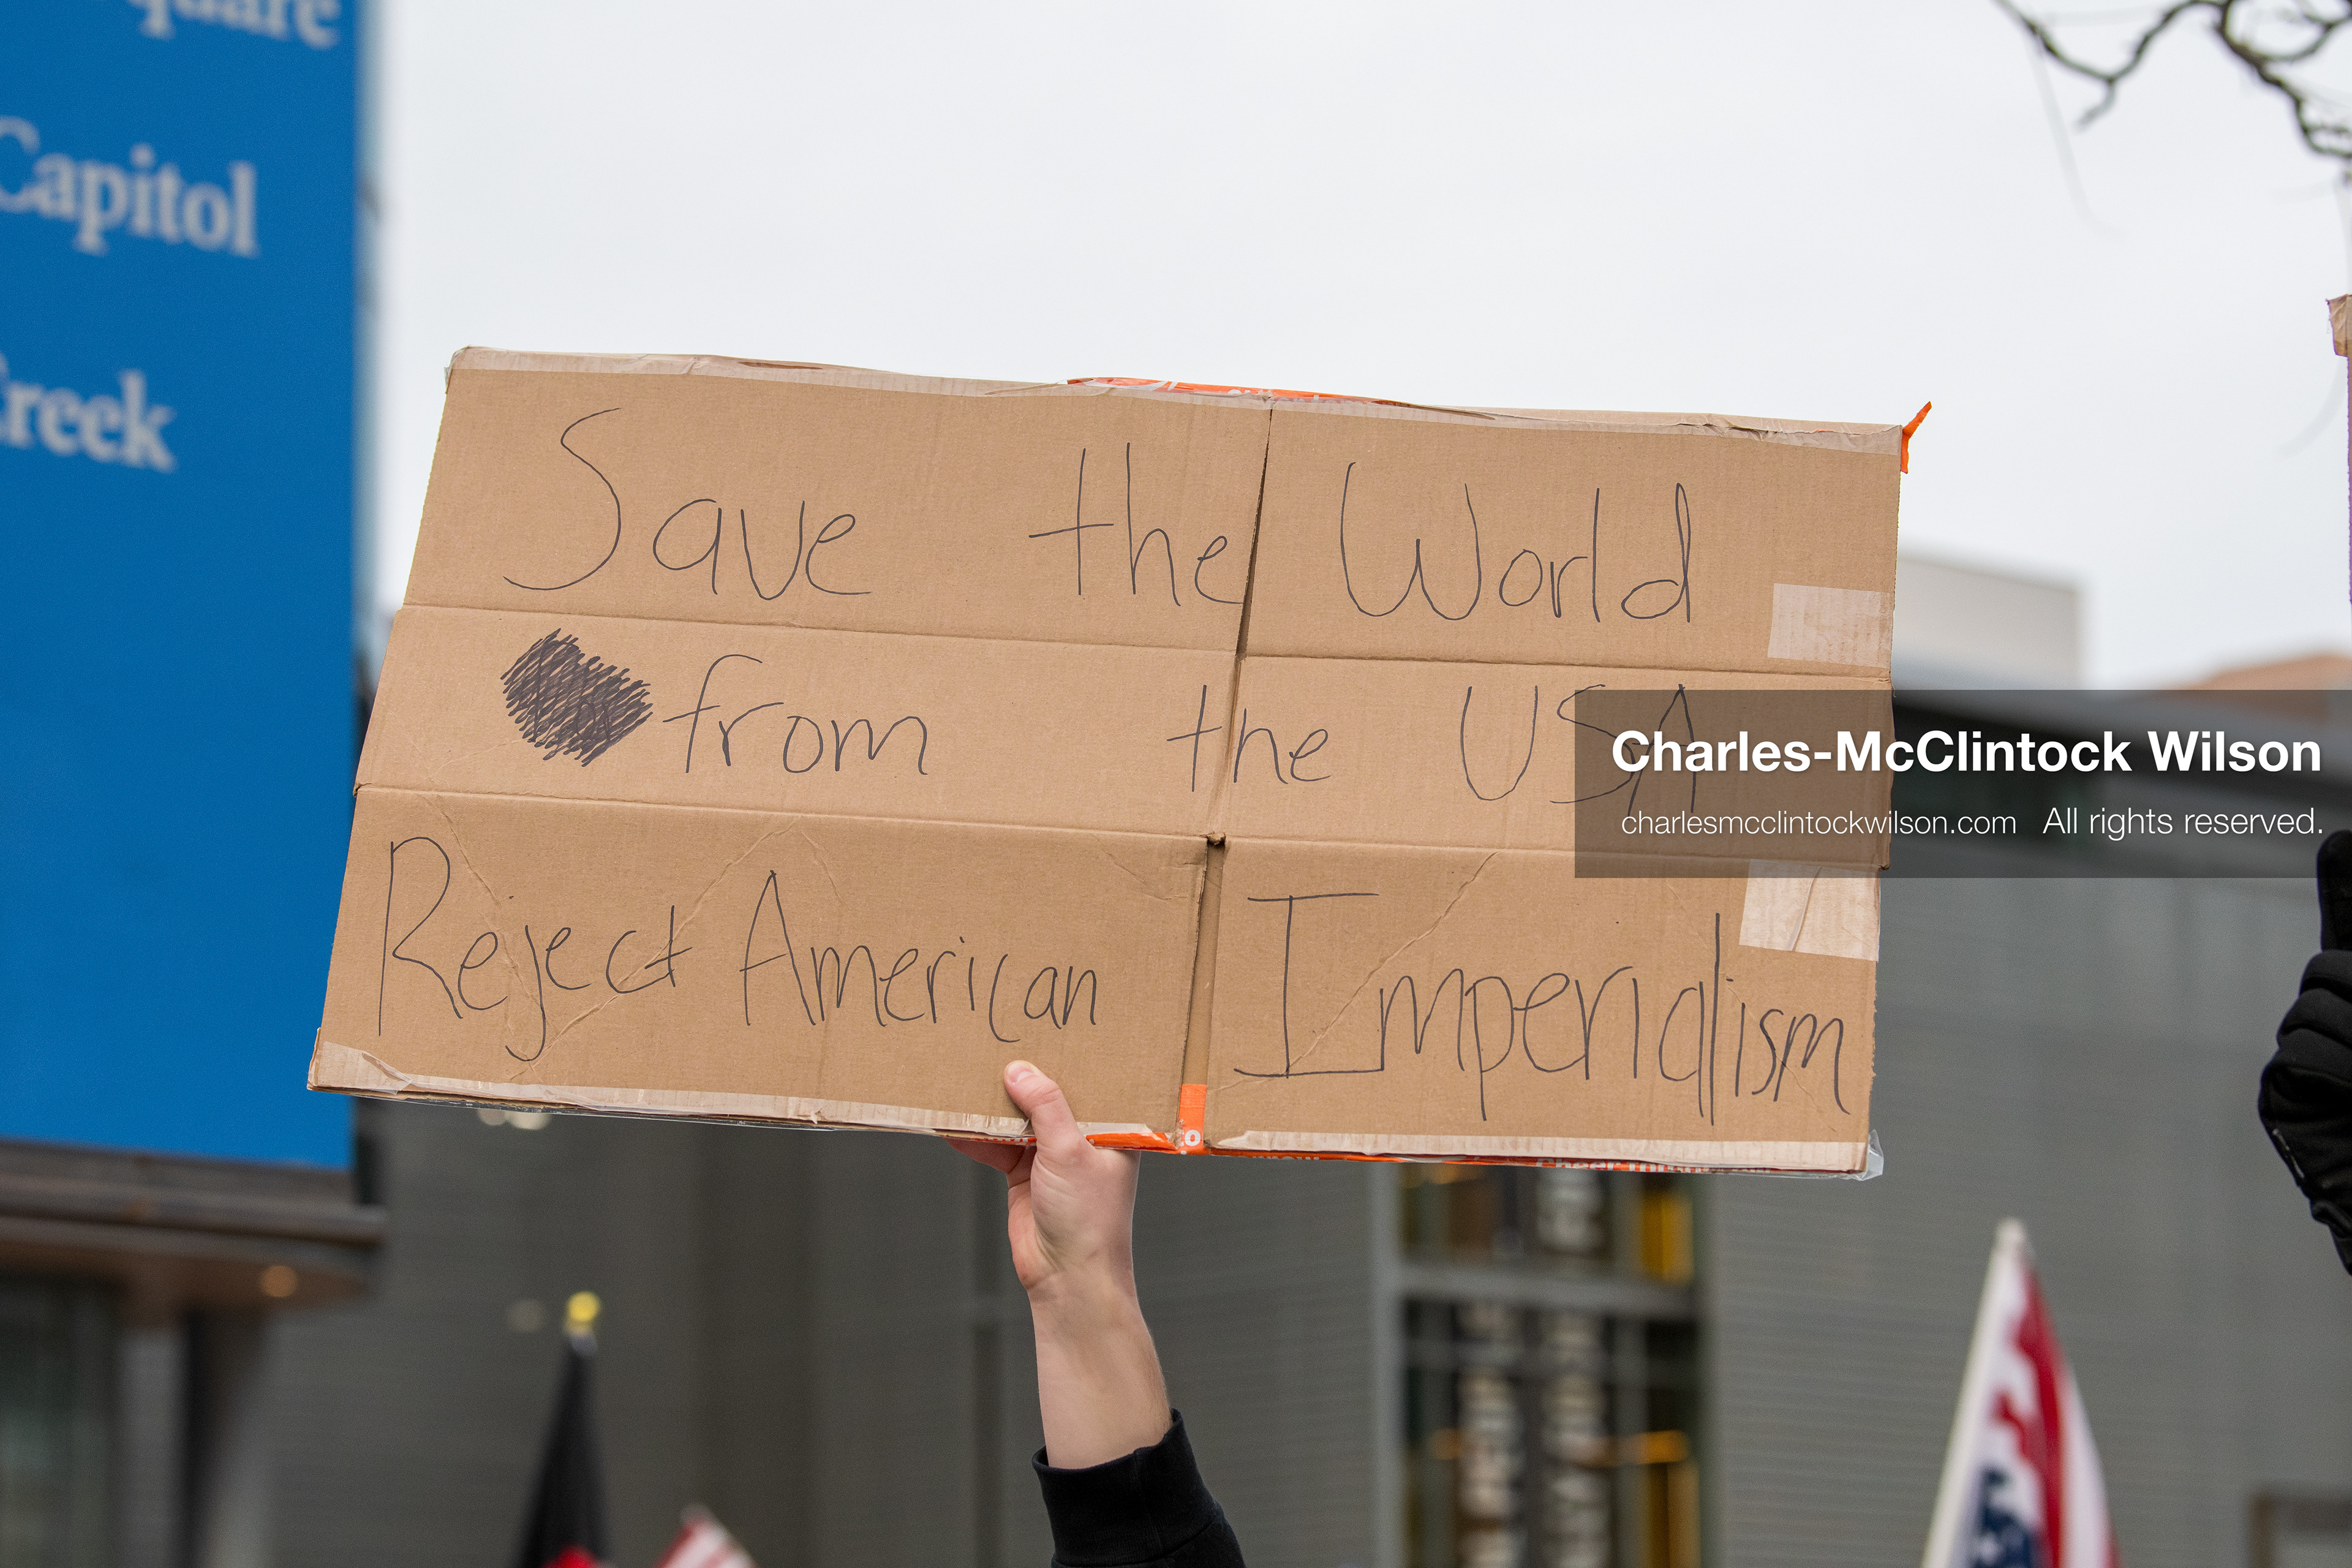 Capitol
Save the World
from the USA
Reject American Imperialism
Charles-McClintock Wilson
charlesmcclintockwilson.com All rights reserved.